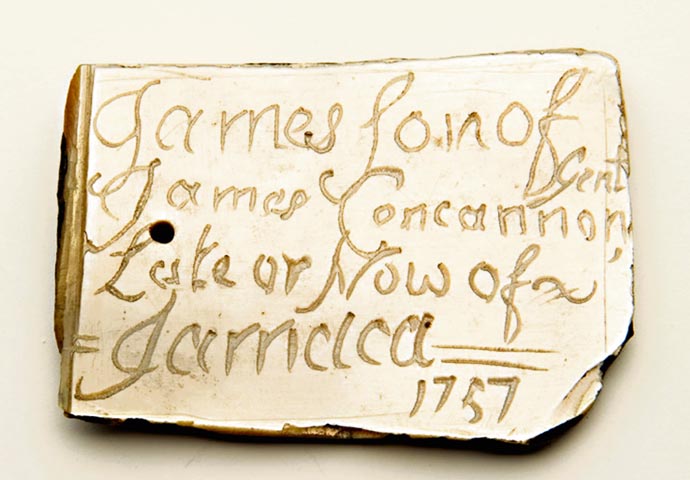 James ſon of
James Concannon, Gent
Late or Now of
Jamaica
1757